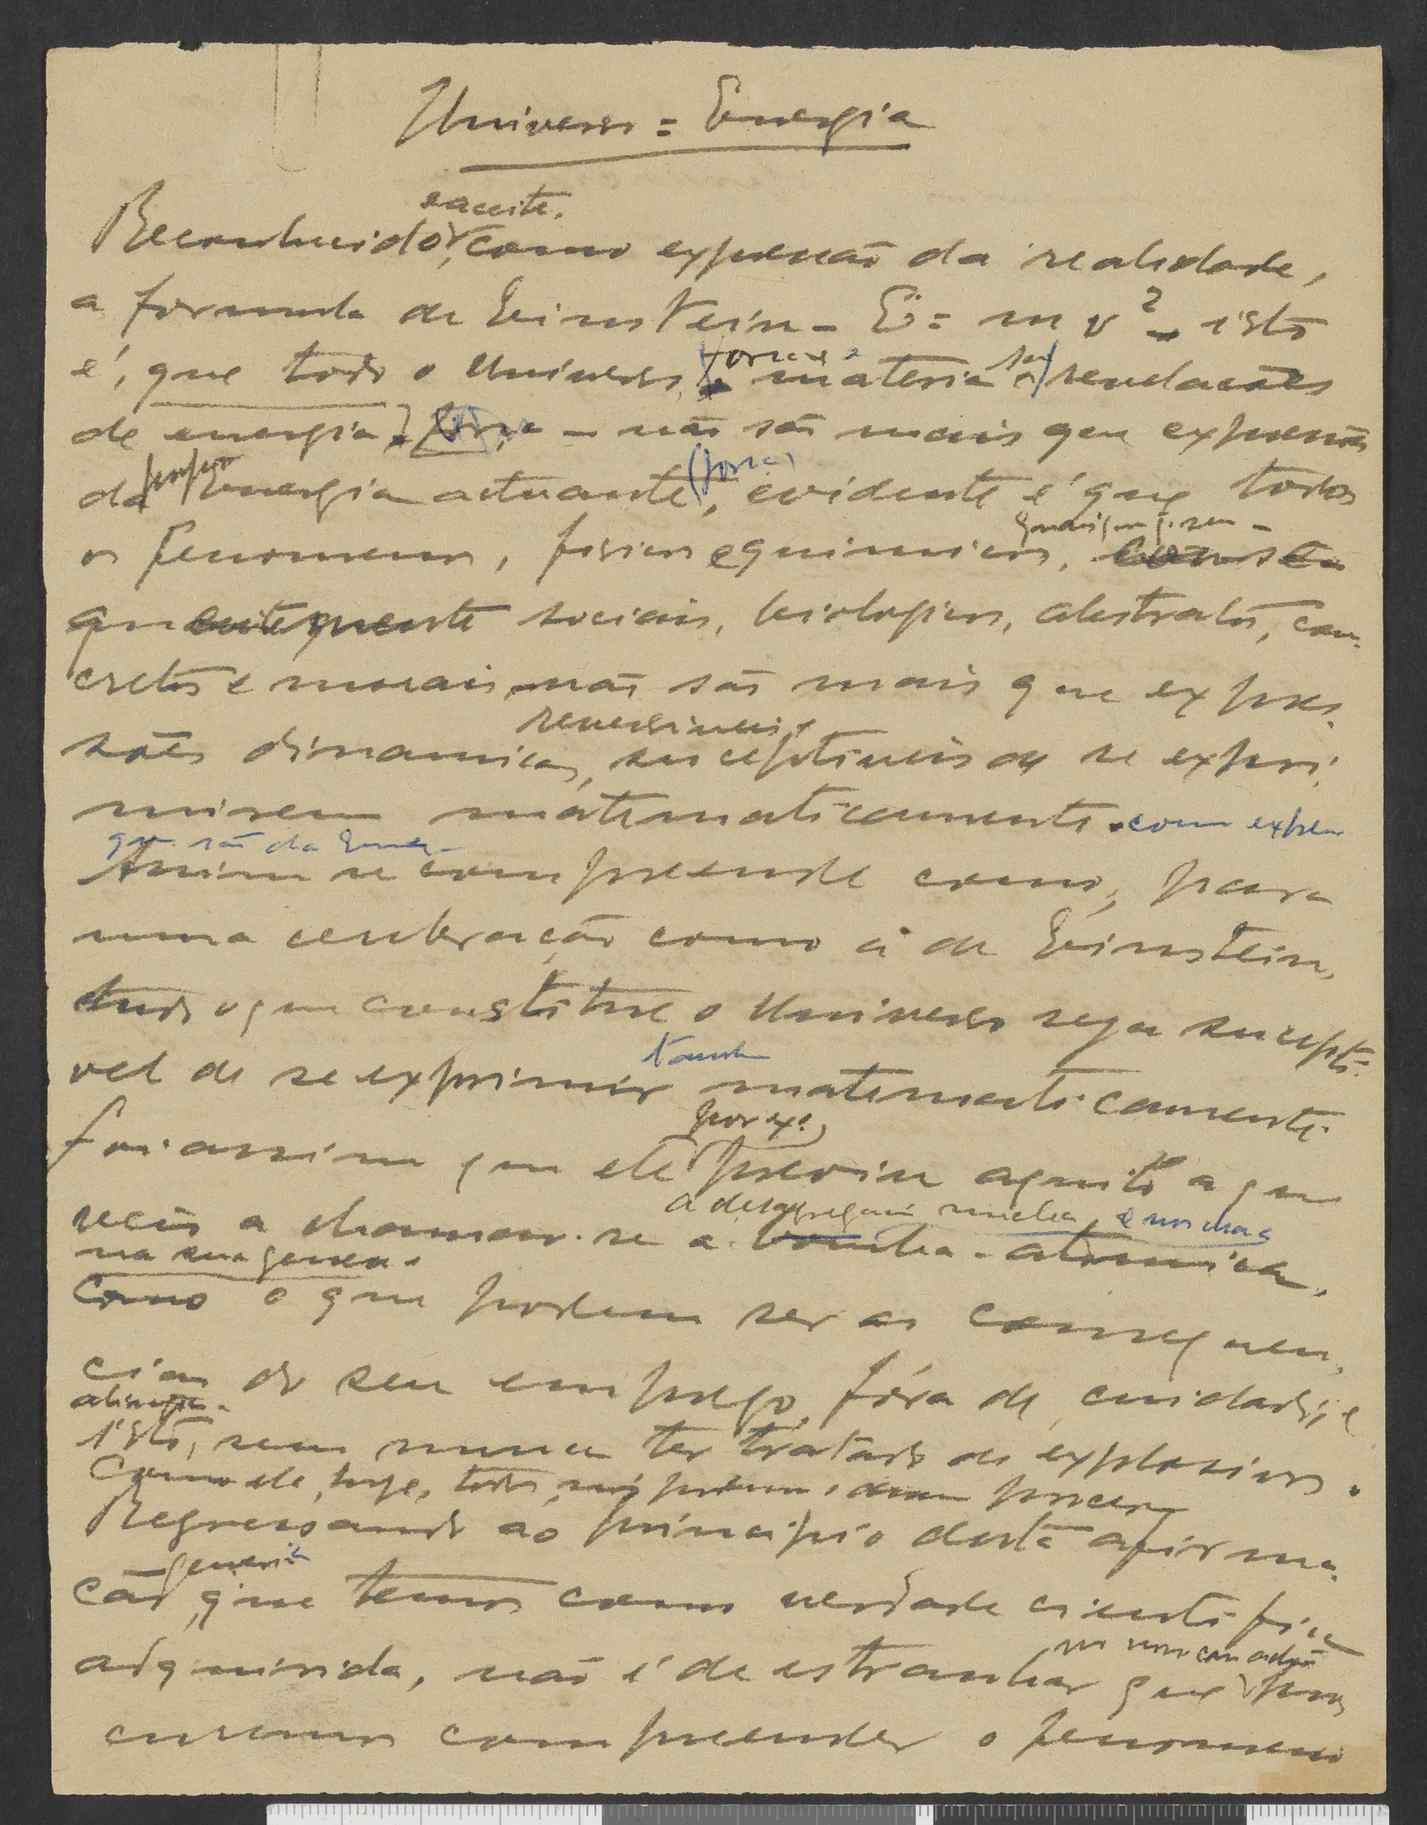 Universo = Energia
e aceite,
Reconhecido, como expressão da realidade,
a formula de Einstein - E = m v² - isto
é, que todo o Universo, materia revelações
de energia - não são mais que expressões
da Energia actuante, (força) evidente é que todos
os fenomenos, fisicos e quimicos,
quaisquer q. sejam -
sociais, biologicos, abstratos, con-
cretos e morais não são mais que expres-
reversiveis,
sões dinamicas, susceptiveis de se expri-
mirem matematicamente. como expres
que são da Energia
Assim se compreende como, para
uma cerebração como a de Einstein,
tudo o que constitue o Universo seja suscepti-
vel de se exprimir matematicamente.
tambem
por ex.º,
Foi assim que ele previu aquilo a que
a desagregação nuclear, e
veiu a chamar-se a bomba-atomica,
na sua genese.
Como o que podem ser as consequen-
cias do seu emprego, fóra de cuidados, e
isto, sem nunca ter tratado de explosivos.
Como ele, hoje, todos nós podemos prever
Regressando ao principio desta afirma-
generica
ção, que temos como verdade cientifica
adquirida, não é de estranhar que pro-
curemos compreender o fenomeno